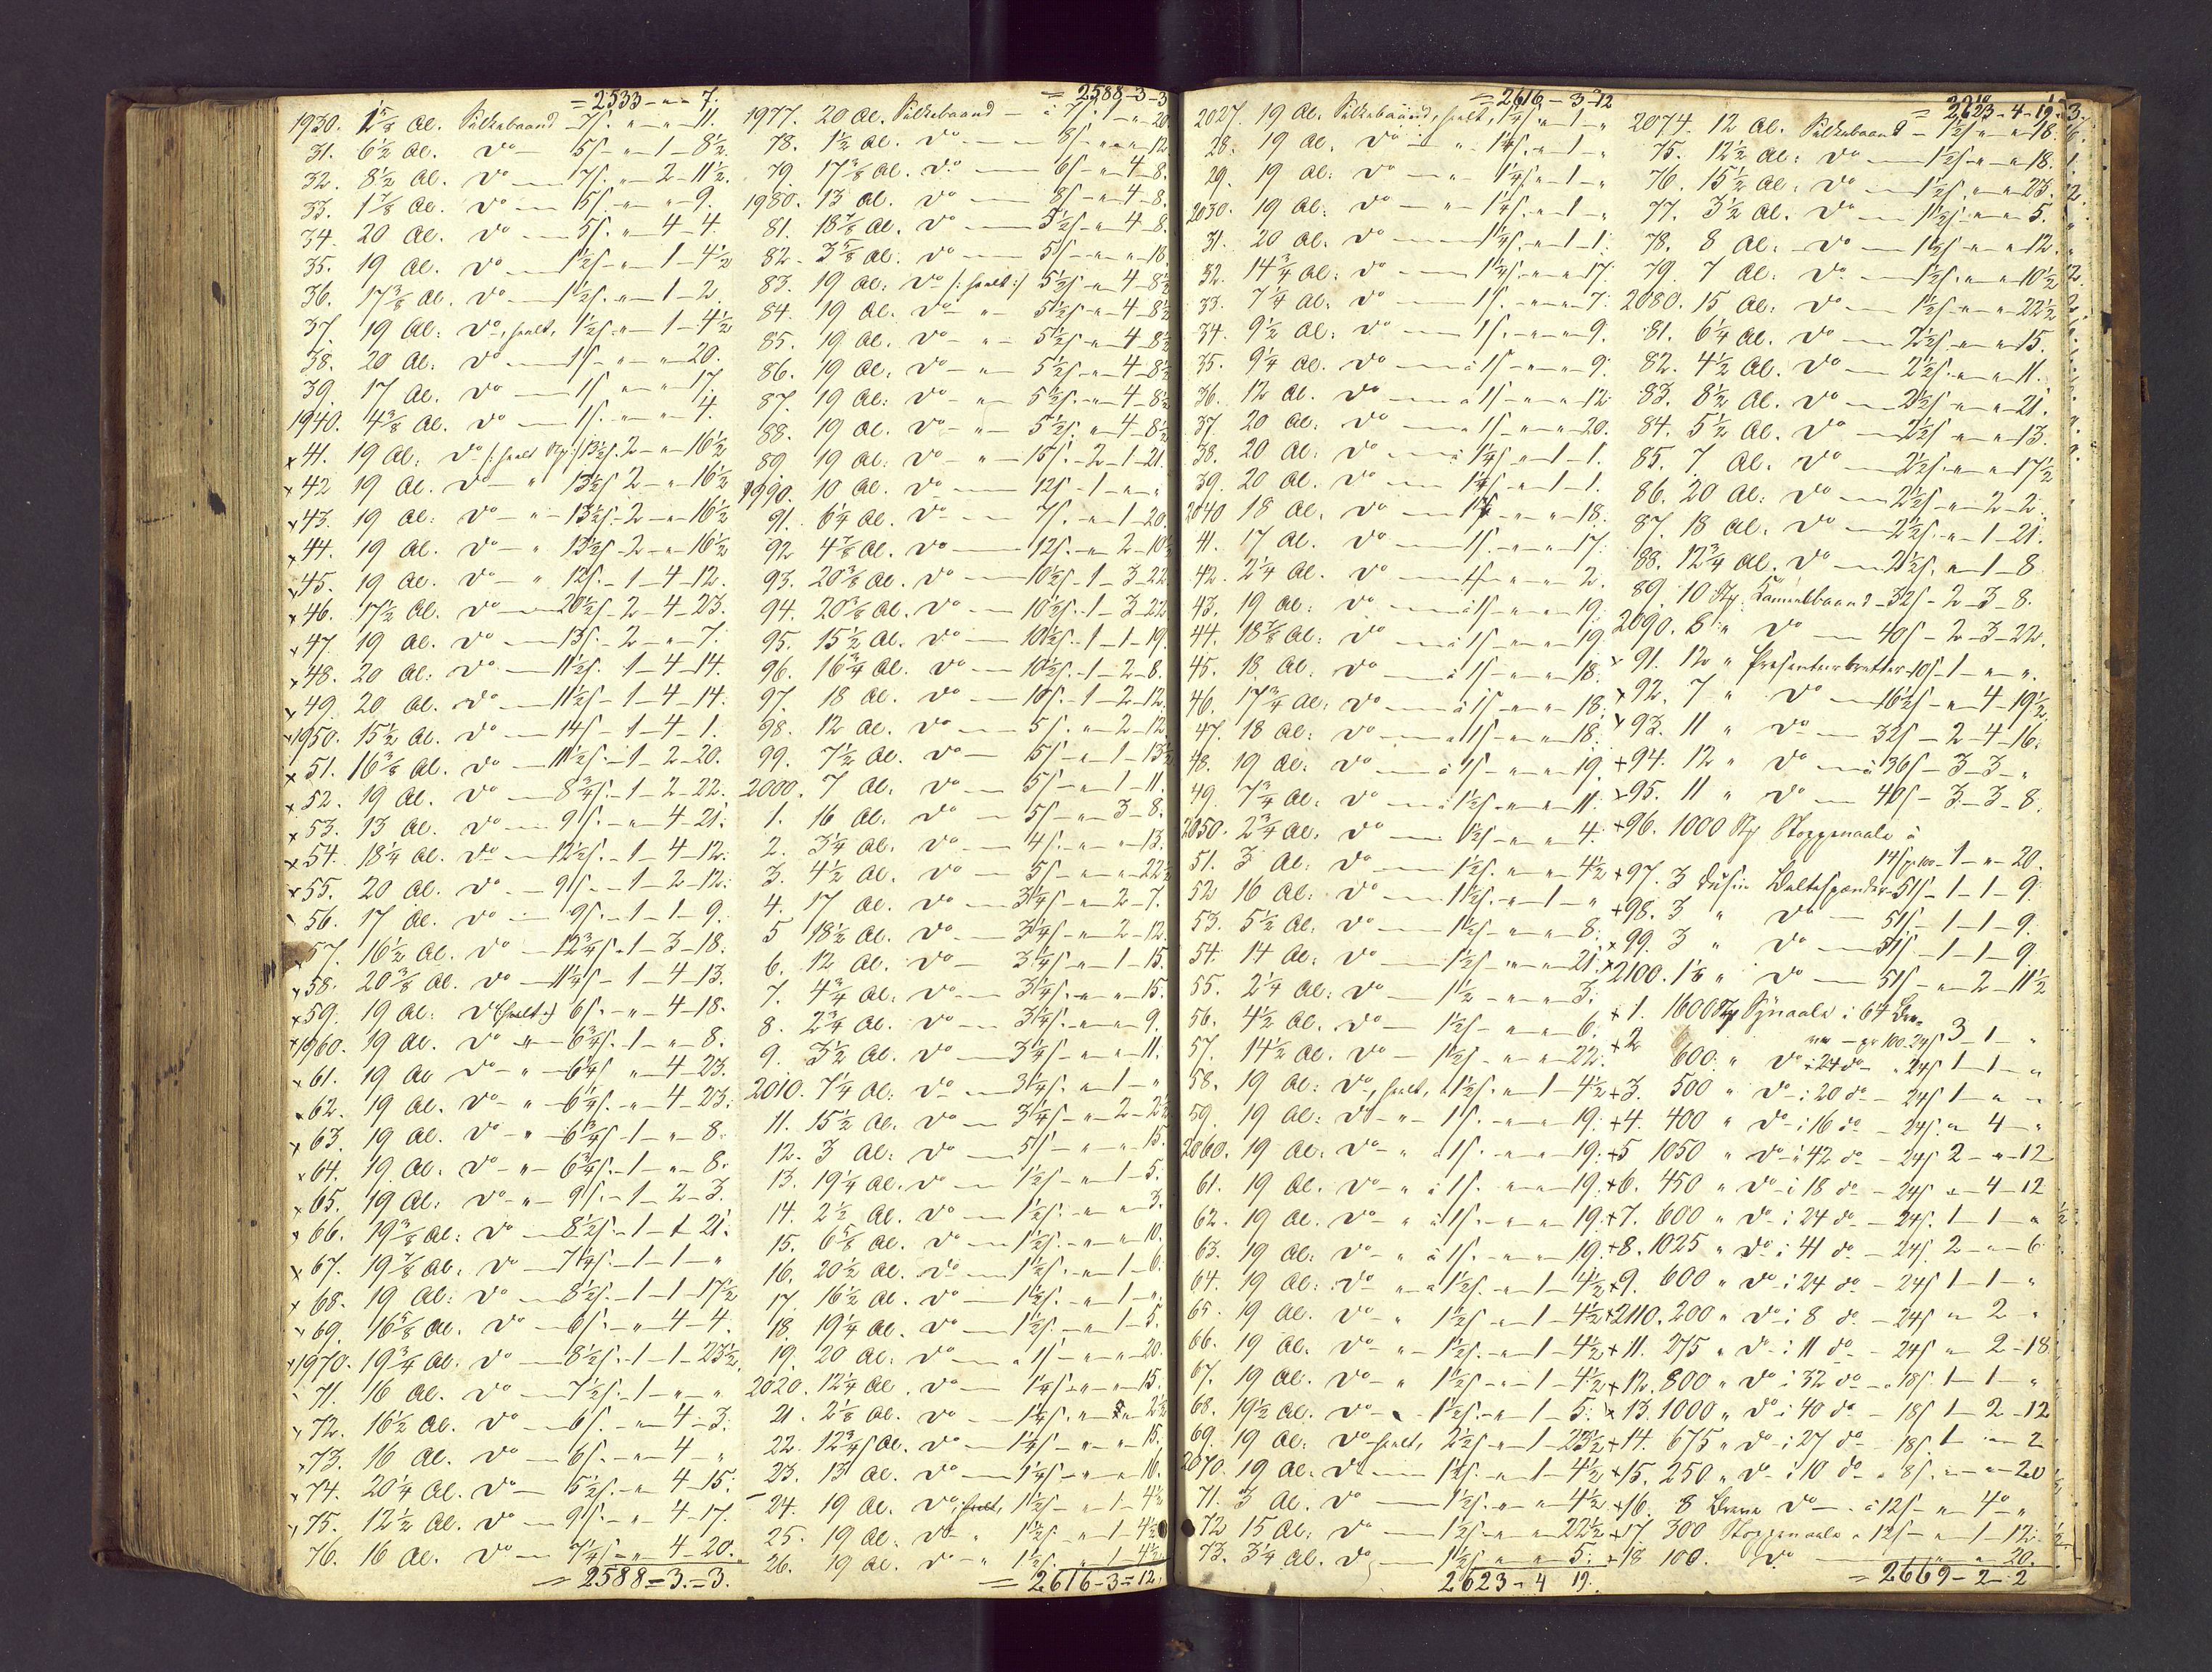 = 2533 - " - 7.
1930. 1 5/8 Al. Silkebaand - 7s. " - " - 11.
31. 6½ Al. do - 5s - " - 1 - 8½.
32. 8½ Al. do - 7s. " - 2 - 11½.
33. 1 7/8 Al. do - 5s. - " - " - 9.
34. 20 Al. do - 5s. " - 4 - 4.
35. 19 Al. do - 1½s. - " - 1 - 4½
36. 17 3/8 Al. do - 1½s. - " - 1 - 2.
37. 19 Al: do, heelt, 1½s. - " - 1 - 4½
38. 20 Al: do - 1s - " - " - 20.
39. 17 Al. do - 1s - " - " - 17.
1940. 4 3/8 Al. do - 1s. - " - " - 4.
x 41. 19 Al: do /: heelt Sty :/ 13½s. 2 - " - 16½
x 42 19 Al. do - " 13½s 2 - " - 16½
x 43. 19 Al: do - " - 13½s - 2 - " - 16½
x 44. 19 Al. do - " 13½s - 2 - " - 16½
x 45. 19 Al. do - " 12s. - 1 - 4 - 12.
x 46. 17½ Al. do - 20½s - 2 - 4 - 23.
x 47. 19 Al. do - 13s. - 2 - " - 7.
x 48. 20 Al: do - 11½s. 1 - 4 - 14.
x 49. 20 Al. do - 11½s - 1 - 4 - 14.
x 1950. 15½ Al. do - 14s - 1 - 4 - 1.
x 51. 16 3/8 Al. do - 11½s. - 1 - 2 - 20.
x 52. 19 Al. do - 8¾s. - 1 - 2 - 22.
x 53. 13 Al. do - 9s. - " - 4 - 21.
x 54. 18¼ Al. do - 12½s. - 1 - 4 - 12.
x 55. 20 Al. do - 9s. - 1 - 2 - 12.
56. 17 Al. do - 9s. - 1 - 1 - 9.
x 57. 16½ Al. do - 12¾s. - 1 - 3 - 18.
x 58. 20 3/8 Al. do - 11¼s - 1 - 4 - 13.
x 59. 19 Al: do (: heelt :) 6s. - " - 4 - 18.
x 1960. 19 Al. do - " - 6¾s. - 1 - " - 8.
x 61. 19 Al do - " - 6¼s " 4 - 23.
x 62. 19 Al. do - " - 6¼s. - " - 4 - 23.
x 63. 19 Al. do - " - 6¾s - 1 - " - 8.
x 64. 19 Al: do - " - 6¾s. - 1 - " - 8.
x 65. 19 Al: do - " - 9s. - 1 - 2 - 3.
x 66. 19 3/8 Al: do - 8½s. - 1 - 1 - 21.
x 67. 19 7/8 Al: do - 7¼s. - 1 - 1 - "
x 68. 19 Al: do - 8½s. - 1 - 1 - 17½
x 69. 16 5/8 Al. do - 6s. - " - 4 - 4.
x 1970. 19¾ Al. do - 8½s. - 1 - 1 - 23½.
71. 16 Al. do - 7½s. - 1 - " - "
x 72. 16½ Al. do - 6s. - " - 4 - 3.
x 73. 16 Al. do - 6s. - " - 4 - "
x 74. 20¼ Al. do - 5½s. - " 4 - 15.
x 75. 12½ Al. do - 9s. - " - 4 - 17.
76. 16 Al. do - 7¼s - " - 4 - 20.
= 2588 = 3. = 3.
= 2588 - 3 - 3
1977. 20 Al. Silkebaand - à 7s. 1 - " - 20
78. 1½ Al. do - 8s - " - " - 12
79. 17 3/8 Al. do - 6s - " - 4 - 8.
1980. 13 Al. do - 8s - " - 4 - 8.
81. 18 7/8 Al. do - 5½s - " - 4 - 8.
82 - 3 5/8 Al: do - 5s - " - " - 18.
83. 19 Al: do /: heelt :/ 5½s - " - 4 - 8½
84. 19 Al. do - " - 5½s - " - 4 - 8½
85. 19 Al. do - " - 5½s - " - 4 - 8½
86. 19 Al. do - " - 5½s - " - 4 - 8½
87. 19 Al: do - " - 5½s. - " - 4 - 8½
88. 19 Al. do - " - 5½s. " - 4 - 8½
89 19 Al: do - " - 15s. - 2 - 1 - 21.
1990. 10 Al. do - 12s - 1 - " - "
91. 6¼ Al. do - 7s. - " - 1 - 20.
92 4 7/8 Al. do - 12s. - " - 2 - 10½
93. 20 3/8 Al. do - 10½s - 1 - 3 - 22
94. 20 3/8 Al. do - 10½s. - 1 - 3 - 22
95. 15½ Al. do - 10½s. - 1 - 1 - 19.
96. 16¾ Al. do - 10½s. - 1 - 2 - 8.
97. 18 Al. do - 10s. - 1 - 2 - 12.
98. 12 Al. do - 5s. " - 2 - 12
99. 7½ Al. do - 5s - " - 1 - 13½
2000. 7 Al: do - 5s - " - 1 - 11.
1. 16 Al: do - 5s - " - 3 - 8.
2. 3¼ Al: do - 4s. - " - " - 13.
3. 4½ Al. do - 5s - " - " - 22½
4. 17 Al. do - 3¼s - " - 2 - 7.
5 18½ Al. do - 3¼s - " - 2 - 12.
6. 12 Al. do - 3¼s - " - 1 - 15.
7. 4¾ Al: do - 3¼s. - " - " - 15.
8. 2¾ Al. do - 3¼s. - " - " - 9.
9. 3½ Al. do - 3¼s - " - " - 11.
2010. 7¼ Al: do - 3¼s. - " - 1 - "
11. 15½ Al. do - 3¼s - " - 2 - 2½
12. 3 Al: do - 5s - " - " - 15.
13. 19¼ Al. do - 1½s - " - 1 - 5.
14. 2½ Al. do - 1½s. - " - " - 3.
15. 6 5/8 Al. do - 1½s. - " - " - 10.
16. 20½ Al. do - 1½s. - " - 1 - 6.
17. 16½ Al. do - 1½s. - " - 1 - "
18. 19¼ Al. do - 1½s. - " - 1 - 5.
19. 20 Al. do - " 1s - " - " - 20.
2020. 12¼ Al. do - 1¼s - " - " - 15.
21. 2 1/8 Al. do - 1¼s. - " - " 2½
22. 12¾ Al. do - 1¼s - " - " - 15.
23. 13 Al. do - 1¼s - " - " - 16.
24. 19 Al. do, heelt, 1½s - " - 1 - 4½
25. 19 Al: do - " 1½s - " - 1 - 4½
26. 19 Al. do - " 1½s - " 1 4½
= 2616 - 3 = 12.
= 2616 - 3 - 12
2027. 19 Al. Silkebaand, heelt, 1¼s - " - 1 - "
28. 19 Al. do - " - 1¼s. - " - 1 - "
29. 19 Al: do - " - 1¼s. - " - 1 - "
2030. 19 Al: do - " - 1¼s. - " - 1 - "
31. 20 Al: do - 1¼s. - " - 1 - 1.
32. 14¾ Al: do - 1¼s. - " - " - 17.
33. 7¼ Al: do - 1s. - " - " - 7.
34. 9½ Al: do - 1s. - " - " - 9.
35. 9¼ Al. do - à 1s - " - " - 9.
36. 12 Al. do - à 1s - " - " - 12
37. 20 Al: do - 1s - " - " - 20.
38. 20 Al: do - à 1¼s - " - 1 - 1.
39. 20 Al. do - 1¼s - " - 1 - 1.
2040 18 Al. do - 1s - " - " - 18.
41. 17 Al. do - 1s. - " - " - 17.
42. 2¼ Al. do - 1s - " - " - 2.
43. 19 Al: do - à 1s - " - " - 19.
44. 18 7/8 Al: do - à 1s - " - " - 19.
45. 18 Al: do - à 1s - " - " - 18.
46. 17¾ Al: do - à 1s - " - " - 18.
47. 18 Al: do - à 1s - " - " - 18.
48. 19 Al: do - à 1s - " - " - 19.
49. 7¾ Al: do - à 1½s - " - " - 11.
2050. 2¾ Al: do - 1½s - " - " - 4.
51. 3 Al: do - 1½s. - " - " - 4½
52 16 Al: do - 1½s - " - 1 - "
53. 5½ Al: do - 1½s - " - " - 8.
54. 14 Al: do - 1½s - " - " - 21.
55. 2¼ Al: do - 1½ - " - " - 3.
56. 4½ Al. do - 1½s - " - " - 6.
57. 14½ Al: do - 1½s - " - " - 22.
58. 19 Al: do, heelt, à 1½s. - " - 1 - 4½
59. 19 Al: do - " - 1s. - " - " - 19.
2060. 19 Al: do - " à 1s. - " - " - 19.
61. 19 Al. do - " à 1s. - " - " - 19.
62. 19 Al. do - " à 1s. - " - " - 19.
63. 19 Al: do - " à 1s. - " - " - 19.
64. 19 Al: do - " à 1½s. - " - 1 - 4½
65. 19 Al. do - " 1½s - " - 1 - 4½
66. 19 Al. do - " - 1½s. - " - 1 - 4½
67. 19 Al. do - " 1½s - " - 1 - 4½
68. 19½ Al. do - " - 1½s. - " - 1 - 5.
69. 19 Al: do heelt, 2½s - " - 1 - 23½
2070. 19 Al: do - 1½s. - " - 1 - 4½
71. 3 Al. do - 1½s. - " - " - 4½
72 15 Al: do - 1½s - " - " - 22½
73. 3¼ Al. do - 1½s " - " - 5.
2623 - 4 19.
= 2623 - 4 - 19
2074. 12 Al. Silkebaand - 1½s - " - " - 18.
75. 12½ Al: do - 1½s - " - " - 18.
76. 15½ Al: do - 1½s. - " - " - 23.
77. 3½ Al. do - 1½s. - " - " - 5.
78. 8 Al: do - 1½s - " - " - 12.
79. 7 Al: do - 1½s. - " - " - 10½
2080. 15 Al: do - 1½s - " - " - 22½
81. 6¼ Al. do - 2½s - " - " - 15.
82. 4½ Al. do - 2½s. - " - " - 11.
83. 8½ Al. do - 2½s - " - " - 21.
84. 5½ Al. do - 2½s - " - " - 13.
85. 7 Al. do - 2½s. - " - " - 17½
86. 20 Al: do - 2½s - " - 2 - 2.
87. 18 Al. do - 2½s. - " - 1 - 21.
88. 12¾ Al. do - 2½s. " - 1 - 8
89. 10 Sty: Kamelbaand - 32s - 2 - 3 - 8.
2090. 8 " do - 40s - 2 - 3 - 22.
x 91. 12 " Presenteerbretter - 10s - 1 - " - "
x 92. 7 " do - 16½s - " - 4 - 19½
x 93. 11 " do - 32s - 2 - 4 - 16.
+ 94. 12 " do - à 36s - 3 - 3 - "
x 95. 11 " do - 40s - 3 - 3 - 8.
+ 96. 1000 Sty Stoppenaale à
14s pr 100 - 1 - " - 20.
+ 97. 3 Dusin Beltespænder - 51s - 1 - 1 - 9.
+ 98. 3 " do - 51s - 1 - 1 - 9.
x 99. 3 " do - 51s - 1 - 1 - 9.
x 2100. " do - 51s - " - 2 - 11½
+ 1. 1600 Sty Synaale i 64 Bre-
ve - pr 100 24s 3 - 1 - "
+ 2 600 " do i 24 do - 24s 1 - 1 - "
+ 3. 500 " do - i 20 do - 24s 1 - " - "
+ 4. 400 " do - i 16 do - 24s. " 4 - "
+ 5 1050 " do - i 42 do - 24s 2 - " - 12
+ 6. 450 " do - i 18 do - 24s " - 4 - 12
+ 7. 600 " do - i 24 do - 24s. 1 - 1 - "
+ 8. 1025 " do - i 41 do - 24s. 2 - " - 6
x 9. 600 " do - i 24 do - 24s 1 - 1 - "
x 2110. 200 " do - i 8 do - 24s " 2 - "
+ 11. 275 " do - i 11 do - 24s " 2 - 18.
+ 12. 800 " do i 32 do - 18s 1 - 1 - "
x 13. 1000 " do i 40 do - 18s 1 - 2 - 12
+ 14. 675 " do - i 27 do - 18s 1 - " - 2
+ 15. 250 " do - i 10 do " 8s. - " - " 20
+ 16. 8 Breve do - à 12s - " 4 - "
+ 17 300 Stoppenaale à 12s - " 1 - 12.
+ 18 100. do " " 20.
= 2669 - 2 - 2